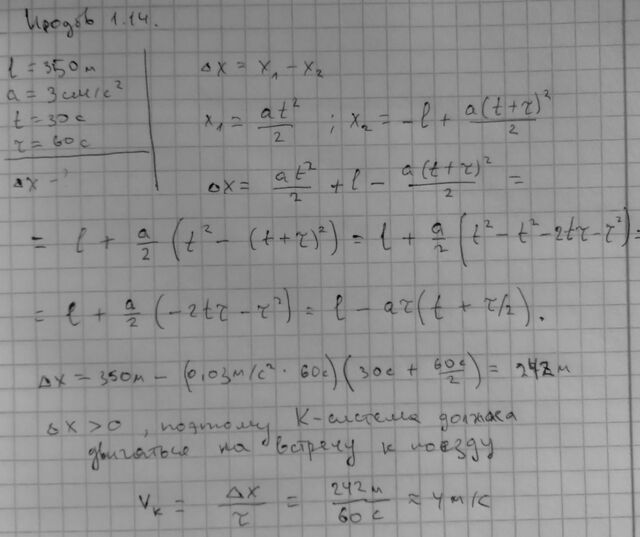 Иродов 1.14.
l = 350м
a = 3 см/с²
t = 30с
τ = 60с
Δx - ?
Δx = x₁ - x₂
x₁ = at²/2 ; x₂ = -l + a(t+τ)²/2
Δx = at²/2 + l - a(t+τ)²/2 =
= l + a/2 (t² - (t+τ)²) = l + a/2 (t² - t² - 2tτ - τ²) =
= l + a/2 (-2tτ - τ²) = l - aτ(t + τ/2).
Δx = 350м - (0,03м/с² · 60с)(30с + 60с/2) = 242м
Δx > 0, поэтому K-система должна
двигаться на встречу к поезду
Vₖ = Δx/τ = 242м/60с ≈ 4м/с